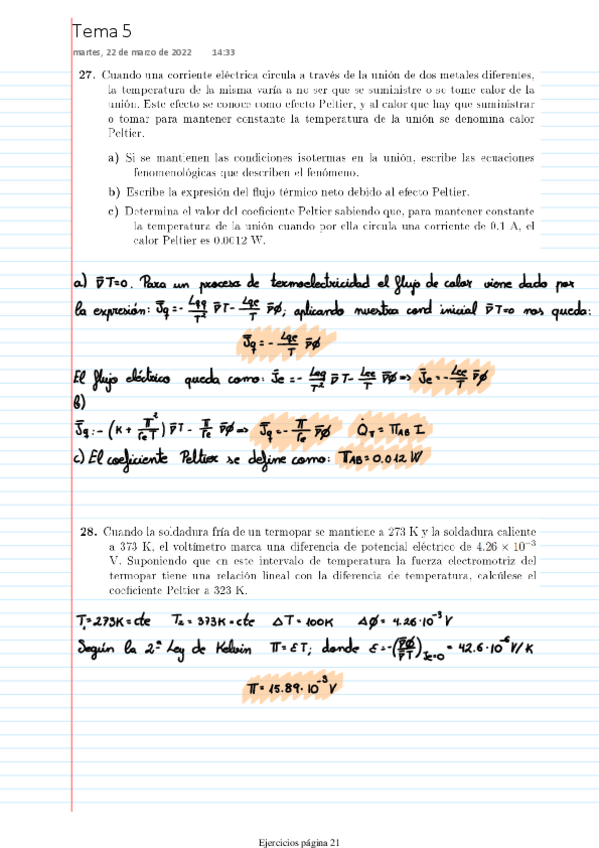 Tema 5
martes, 22 de marzo de 2022 14:33
27. Cuando una corriente eléctrica circula a través de la unión de dos metales diferentes,
la temperatura de la misma varía a no ser que se suministre o se tome calor de la
unión. Este efecto se conoce como efecto Peltier, y al calor que hay que suministrar
o tomar para mantener constante la temperatura de la unión se denomina calor
Peltier.
a) Si se mantienen las condiciones isotermas en la unión, escribe las ecuaciones
fenomenológicas que describen el fenómeno.
b) Escribe la expresión del flujo térmico neto debido al efecto Peltier.
c) Determina el valor del coeficiente Peltier sabiendo que, para mantener constante
la temperatura de la unión cuando por ella circula una corriente de 0.1 A, el
calor Peltier es 0.0012 W.
a) ∇T=0. Para un proceso de termoelectricidad el flujo de calor viene dado por
la expresión: J̄q = - Lqq/T² ∇T - Lqe/T ∇φ; aplicando nuestra cond inicial ∇T=0 nos queda:
J̄q = - Lqe/T ∇φ
El flujo eléctrico queda como: J̄e = - Leq/T² ∇T - Lee/T ∇φ => J̄e = - Lee/T ∇φ
b)
J̄q = - (K + π²/(re T)) ∇T - π/re ∇φ => J̄q = - π/re ∇φ Q̇π = πAB I
c) El coeficiente Peltier se define como: πAB = 0.012 W
28. Cuando la soldadura fría de un termopar se mantiene a 273 K y la soldadura caliente
a 373 K, el voltímetro marca una diferencia de potencial eléctrico de 4.26 × 10⁻³
V. Suponiendo que en este intervalo de temperatura la fuerza electromotriz del
termopar tiene una relación lineal con la diferencia de temperatura, calcúlese el
coeficiente Peltier a 323 K.
T₁=273K=cte T₂=373K=cte ΔT=100K Δφ=4.26·10⁻³ V
Según la 2ª Ley de Kelvin π=εT; donde ε=-(∇φ/∇T)Je=0 = 42.6·10⁻⁶ V/K
π=15.89·10⁻³ V
Ejercicios página 21